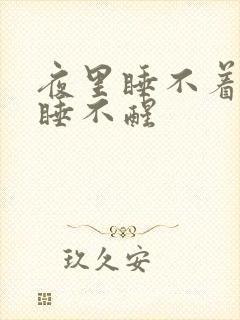 夜里睡不着
睡不醒
玖久安